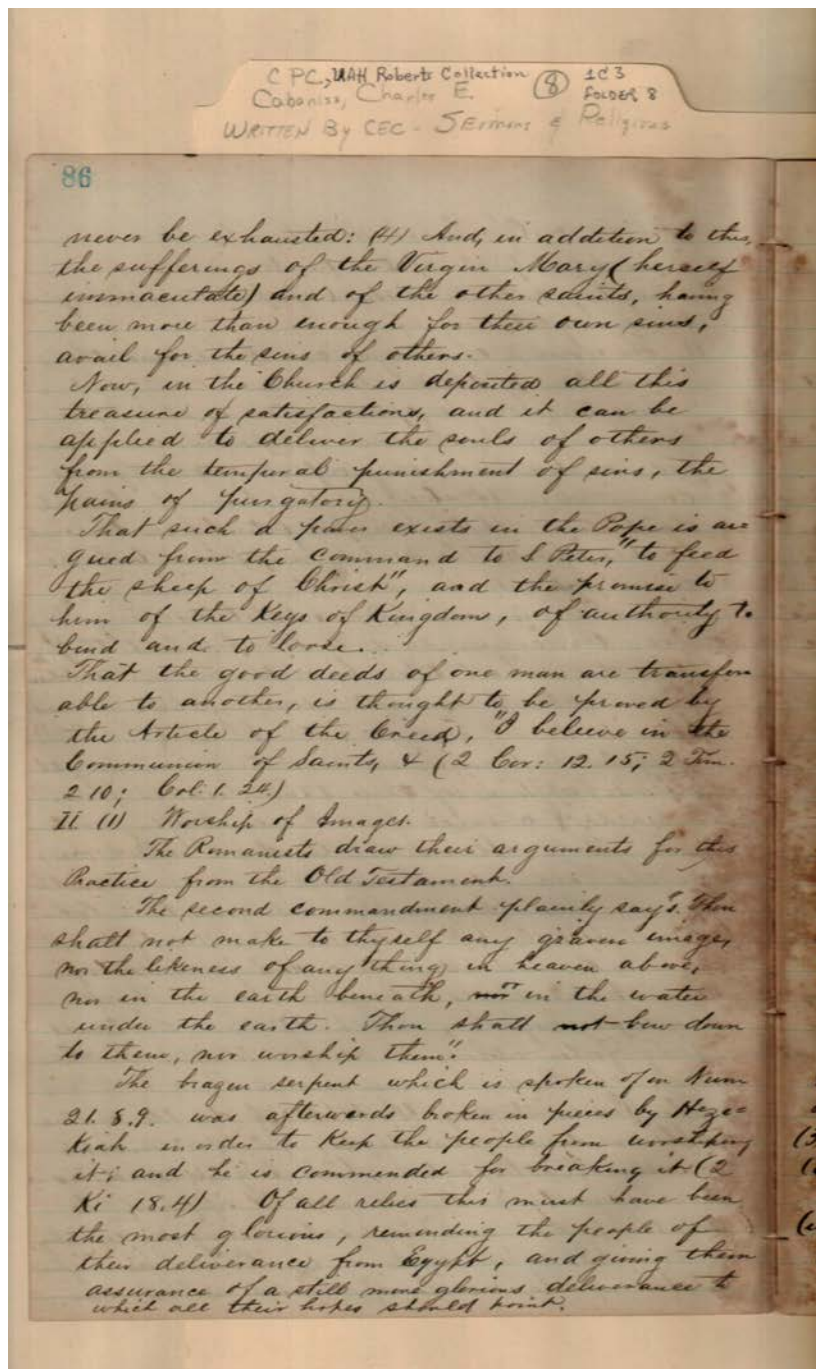 CPC, UAH Roberts Collection (8) 1C3
Cabaniss, Charles E. FOLDER 8
WRITTEN By CEC - Sermons & Religious
86
never be exhausted: (4) And, in addition to this,
the sufferings of the Virgin Mary (herself
immaculate) and of the other saints, having
been more than enough for their own sins,
avail for the sins of others.
Now, in the Church is deposited all this
treasure of satisfactions, and it can be
applied to deliver the souls of others
from the temporal punishment of sins, the
pains of purgatory.
That such a power exists in the Pope is ar
gued from the command to S Peter, "to feed
the sheep of Christ", and the promise to
him of the Keys of Kingdom, of authority to
bind and to loose.
That the good deeds of one man are transfer
able to another, is thought to be proved by
the Article of the Creed, "I believe in the
Communion of Saints, & (2 Cor: 12.15; 2 Tim.
2 10; Col. 1. 24)
II. (1) Worship of Images.
The Romanists draw their arguments for this
Practice from the Old Testament.
The second commandment plainly say's "Thou
shalt not make to thyself any graven image,
nor the likeness of any thing in heaven above,
nor in the earth beneath, nor in the water
under the earth. Thou shall not bow down
to them, nor worship them".
The brazen serpent which is spoken of in Num
21. 8.9. was afterwards broken in pieces by Heze=
kiah in order to keep the people from worshiping
it; and he is commended for breaking it (2
Ki 18.4) Of all relics this must have been
the most glorious, reminding the people of
their deliverance from Egypt, and giving them
assurance of a still more glorious deliverance to
which all their hopes should point.